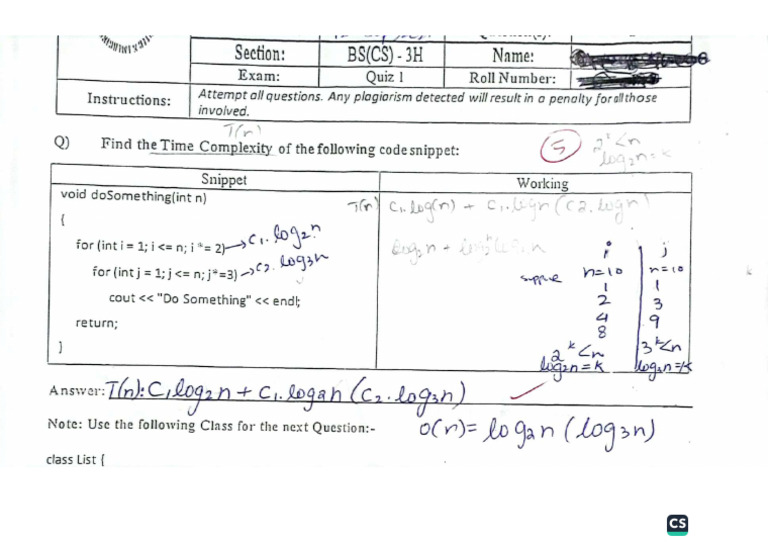 Section: BS(CS) - 3H Name:
Exam: Quiz 1 Roll Number:
Instructions: Attempt all questions. Any plagiarism detected will result in a penalty for all those
involved.
T(n)
Q) Find the Time Complexity of the following code snippet:
5
2^k<n
log2n=k
Snippet Working
void doSomething(int n)
T(n) C1.log(n) + C1.logn(C2.logn)
{
for (int i = 1; i <= n; i *= 2) → C1.log2n
for (int j = 1; j <= n; j*=3) → C2 log3n
cout << "Do Something" << endl;
return;
}
i j
suppose n=10 n=10
1 1
2 3
4 9
8
2^k<n 3^k<n
log2n=k log3n=k
Answer: T(n): C1log2n + C1.log2n (C2.log3n)
Note: Use the following Class for the next Question:-
O(n)= log2n (log3n)
class List {
CS